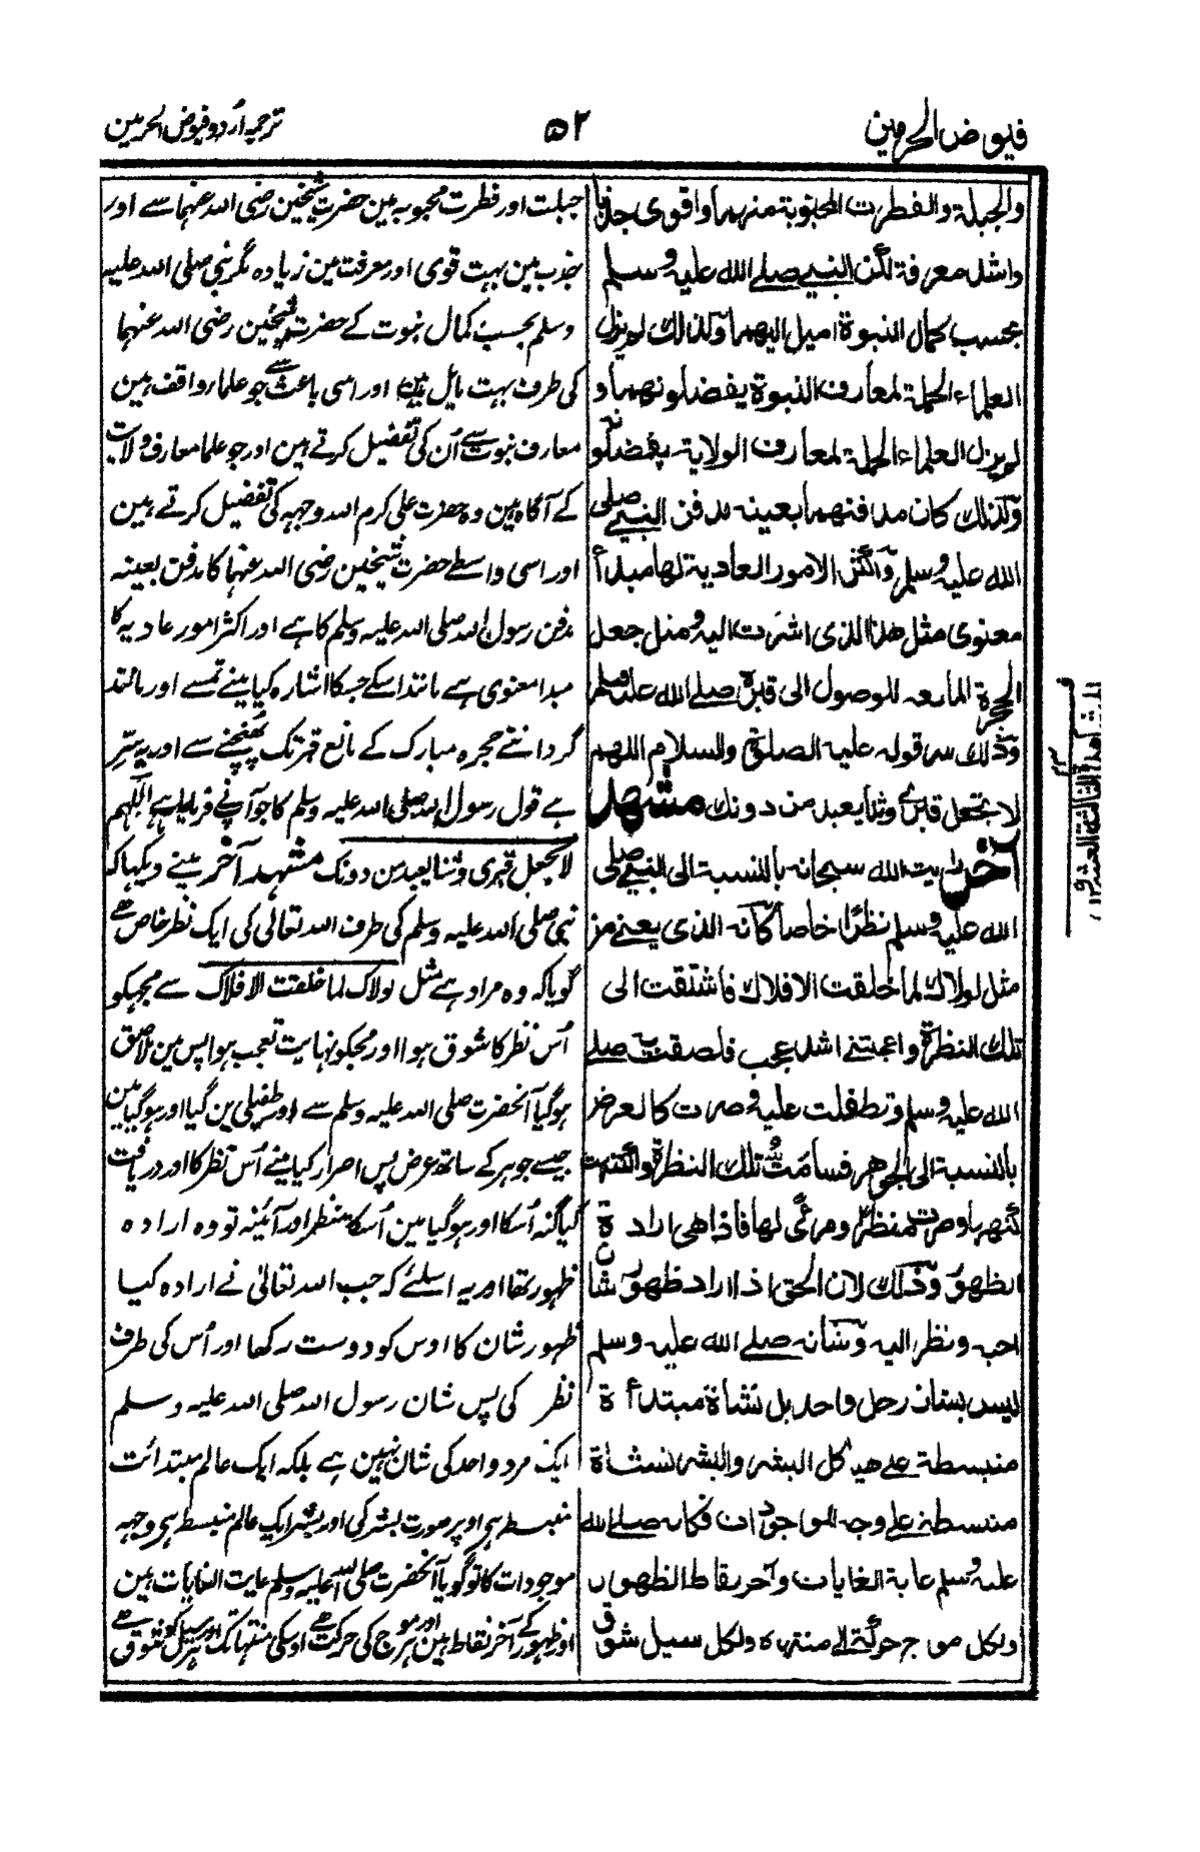 فیوض الحرمین
۵۲
ترجمہ اُردو فیوض الحرمین
والجبلة والفطرت المحبوبة منهما واقوى جذبا
واشد معرفة لكن النبي صلى الله عليه وسلم
بحسب كمال النبوة اميل اليهما ولذلك لم يزل
العلماء الحملة لمعارف النبوة يفضلونهما و
لم يزل العلماء الحملة لمعارف الولاية يفضلونه
ولذلك كان مدافنهما بعينه مدفن النبي صلى
الله عليه وسلم واكثر الامور العادية لها مبدأ
معنوى مثل هذا الذى اشرت اليه ومثل جعل
الحجرة المانعه للوصول الى قبرة صلى الله عليه وسلم
وذلك سر قوله عليه الصلوة والسلام اللهم
لا تجعل قبرى وثنا يعبد من دونك مشهد
آخر رايت الله سبحانه بالنسبة الى النبي صلى
الله عليه وسلم نظرًا خاصا كانه الذى يعنى من
مثل لولاك لما خلقت الافلاك فاشتقت الى
تلك النظرة واعجبتنى اشد عجب فلصقت به صلى
الله عليه وسلم وتطفلت عليه وصرت كالعرض
بالنسبة الى الجوهر فسامت تلك النظرة واكتنهت
كنهها وصرت منظرًا ومرئى لها فاذا هى ارادة
الظهور وذلك لان الحق اذا اراد ظهور شان
احبه ونظر اليه وشانه صلى الله عليه وسلم
ليس بشان رجل واحد بل نشاة مبتدأة
منبسطة على هيكل البشر والبشر نشاة
منبسطة على وجه الموجودات فكانه صلى الله
عليه وسلم غاية الغايات وآخر نقاط الظهور
ولكل موج حركة الى منتهاه ولكل سيل شوق
جبلت اور فطرت محبوبہ مین حضرت شیخین رضی اللہ عنہما سے اور
جذب مین بہت قوی اور معرفت مین زیادہ مگر نبی صلی اللہ علیہ
وسلم بحسب کمال نبوت کے حضرت شیخین رضی اللہ عنہما
کی طرف بہت مایل ہین اور اسی باعث سے جو علماء واقف ہین
معارف نبوت سے اُن کی تفضیل کرتے ہین اور جو علما معارف ولایت
کے آگاہ ہین وہ حضرت علی کرم اللہ وجہہ کی تفضیل کرتے ہین
اور اسی واسطے حضرت شیخین رضی اللہ عنہما کا مدفن بعینہ
مدفن رسول اللہ صلی اللہ علیہ وسلم کا ہے اور اکثر امور عادیہ کا
مبدا معنوی ہے مانند اسکے جسکا اشارہ کیا مینے تمسے اور مانند
گرداننے حجرہ مبارک کے مانع قبر تک پہنچنے سے اور یہ سِّر
ہے قول رسول اللہ صلی اللہ علیہ وسلم کا جو آپنے فرمایا ہے اللّٰہم
لا تجعل قبری وثنا یعبد من دونک مشہد آخر مینے دیکہا کہ
نبی صلی اللہ علیہ وسلم کی طرف اللہ تعالی کی ایک نظر خاص ہے
گویا کہ وہ مراد ہے مثل لولاک لما خلقت الافلاک سے مجہکو
اُس نظر کا شوق ہوا اور مجکو نہایت تعجب ہوا پس مین ملاصق
ہوگیا آنحضرت صلی اللہ علیہ وسلم سے اور طفیلی بن گیا اور ہوگیا مین
جیسے جوہر کے ساتھ عرض پس اصرار کیا مینے اُس نظر کا اور دریافت
کیا کنہ اُسکا اور ہوگیا مین اُسکا منظر اور آئینہ تو وہ ارادہ
ظہور تھا اور یہ اسلئے کہ جب اللہ تعالیٰ نے ارادہ کیا
ظہور شان کا اوس کو دوست رکھا اور اُس کی طرف
نظر کی پس شان رسول اللہ صلی اللہ علیہ وسلم
ایک مرد واحد کی شان نہین ہے بلکہ ایک عالم مبتدائت
منبسط ہے اوپر صورت بشر کی اور بشر ایک عالم منبسط ہے وجہہ
موجودات کا تو گویا آنحضرت صلی اللہ علیہ وسلم غایت الغایات ہین
اور ظہور کے آخر نقاط ہین اور ہر موج کی حرکت ہے اوسکی منتہا تک اور ہر سیل کو شوق ہے